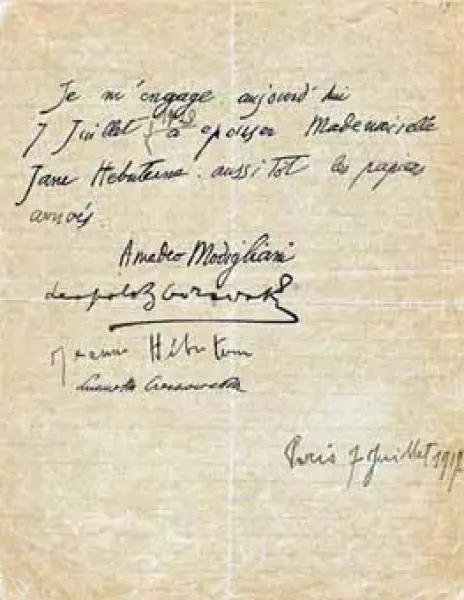 Je m'engage aujourd'hui
7 Juillet 1919 à epouser Mademoiselle
Jane Hebuterne aussitot les papiers
arrivés
Amedeo Modigliani
Leopold Zborowski
Jeanne Hébuterne
Czechowska
Paris 7 Juillet 1919